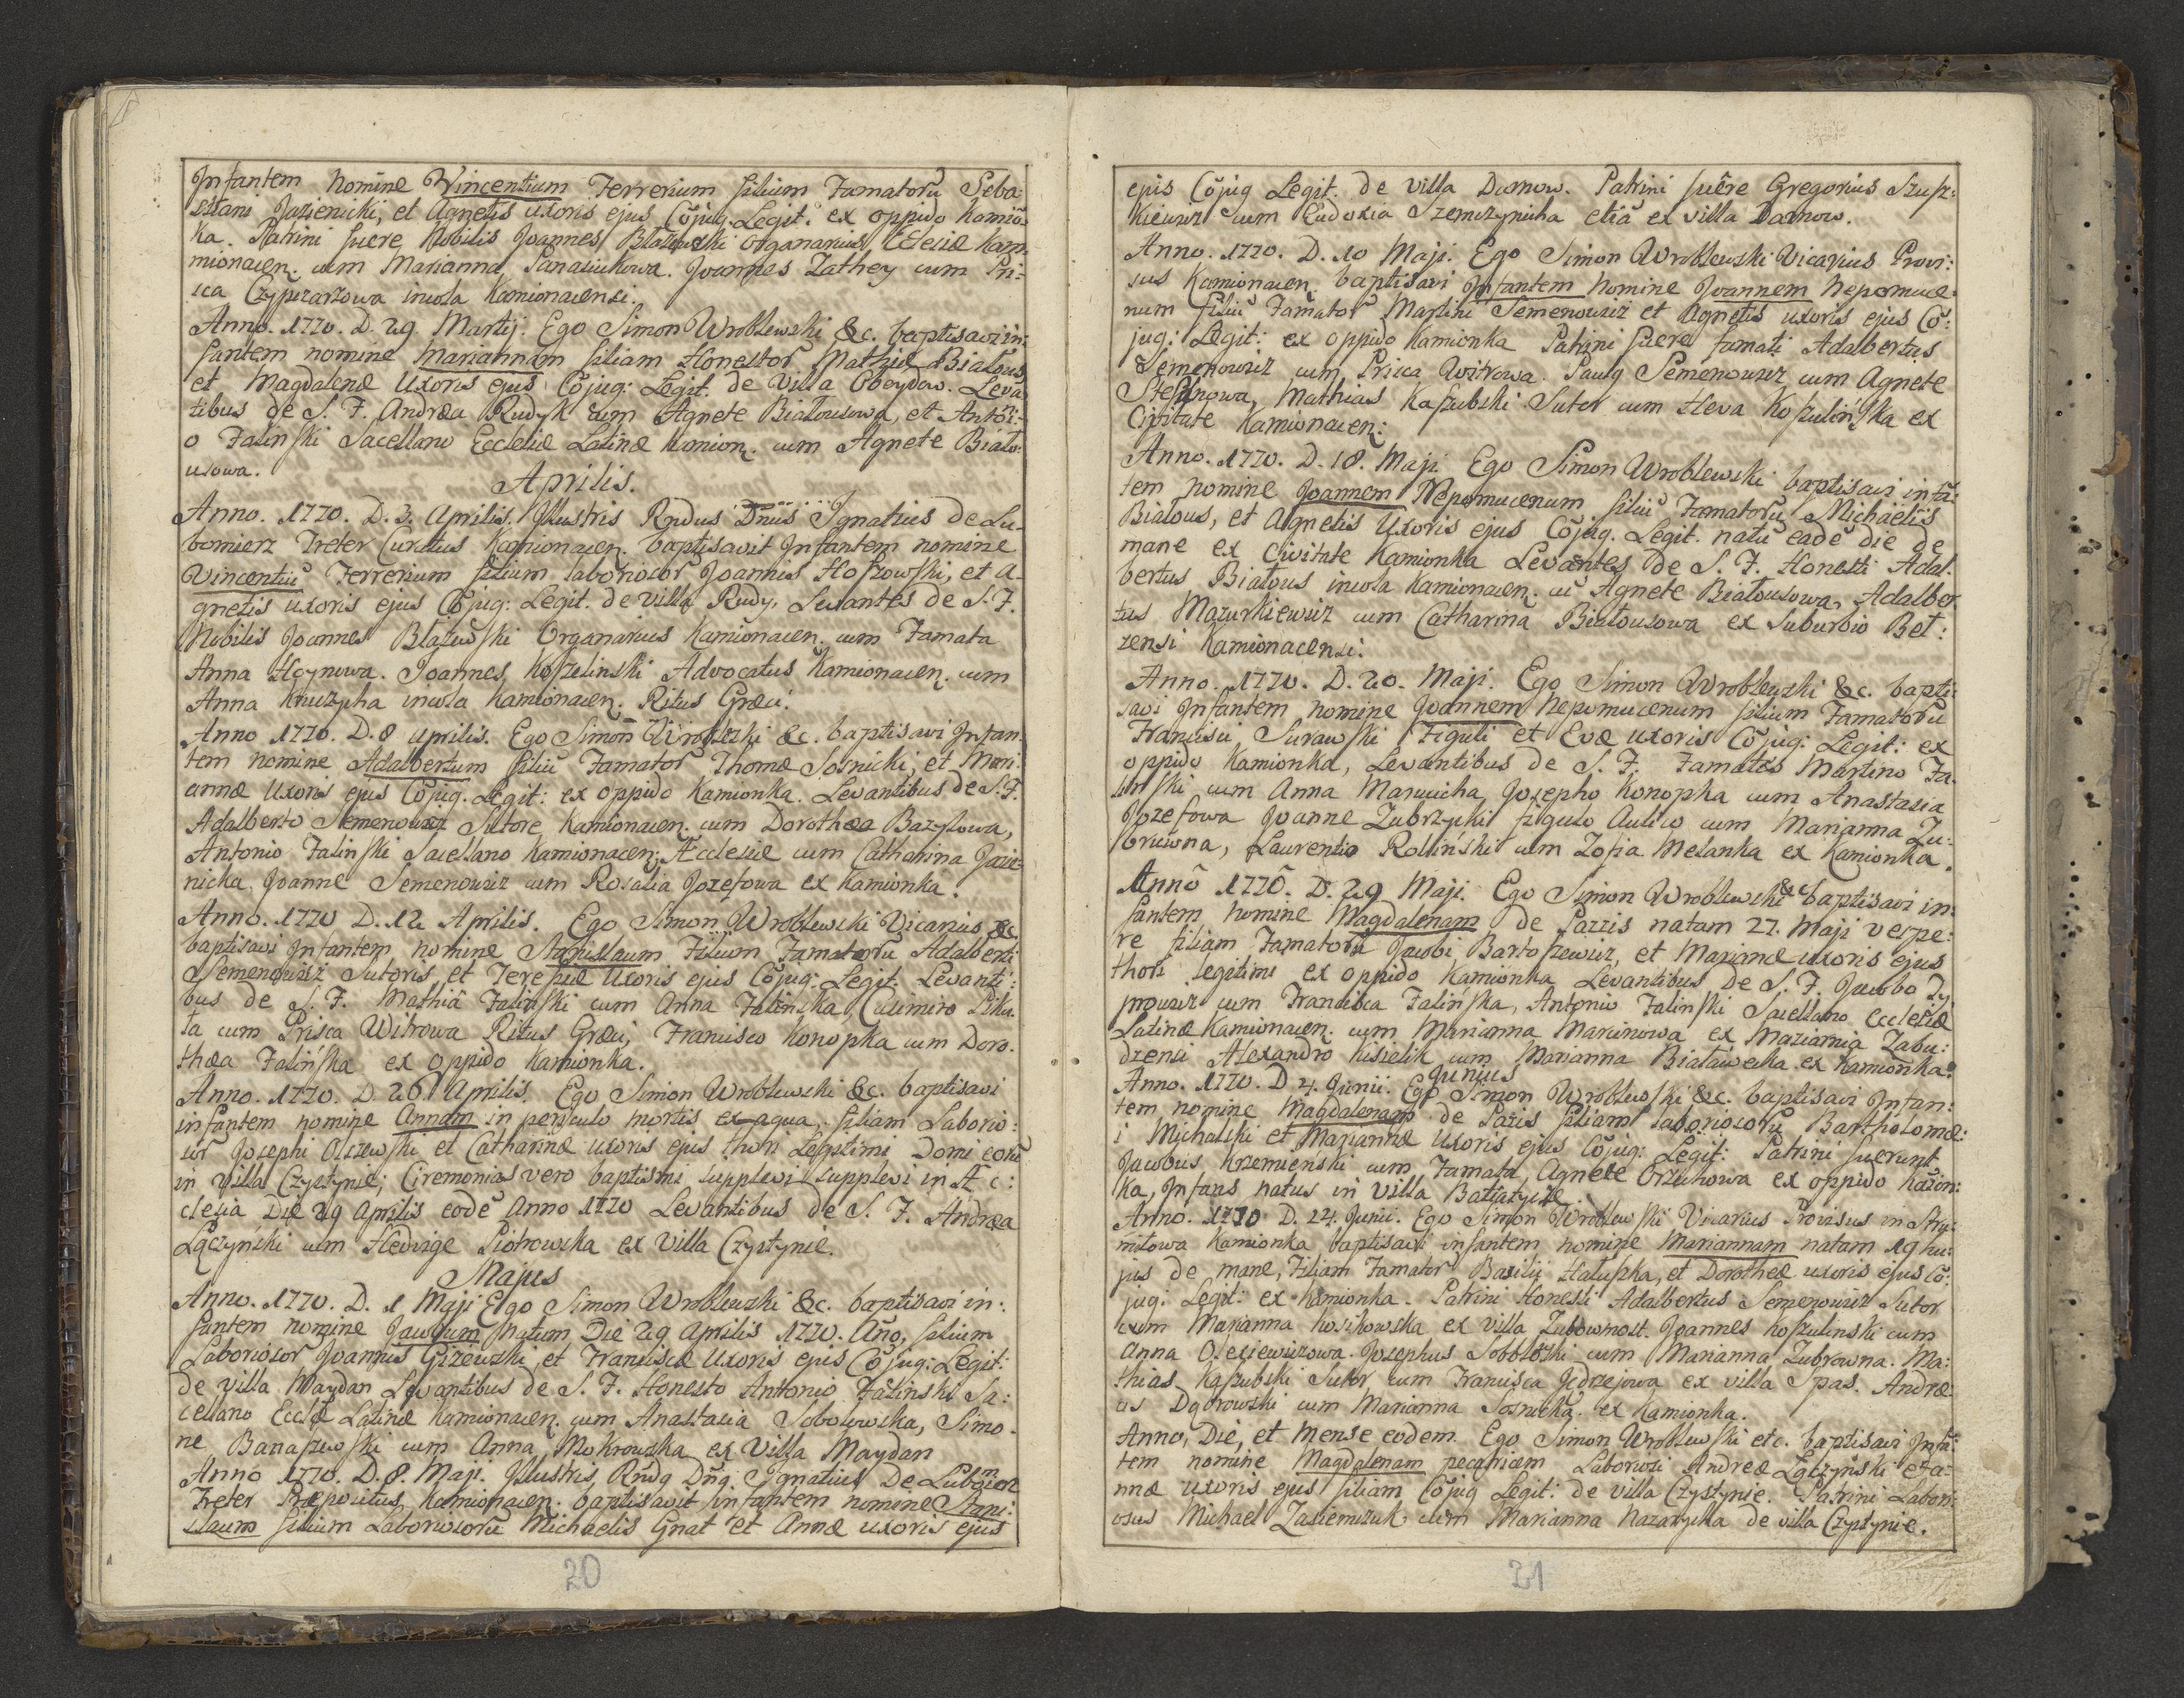 Infantem Nomine Wincentium Ferrerium filium Famatorũ Seba:
stiani Jazienicki, et Agnetis uxoris ejus Cõjug. Legit. ex oppido Kamiõ:
ka. Patrini fuere Nobilis Joannes Błażewski Organarius Ecclesiæ Kam:
mionacen. cum Marianna Panasiukowa. Joannes Zathey cum Pri:
sca Czypczarzowa incola Kamionacensi.
Anno. 1770. D. 29. Martij. Ego Simon Wroblewski &c. baptisavi in:
fantem nomine Mariannam filiam Honestor Mathiæ Białous
et Magdalenæ Uxoris ejus Cõjug: Legit. de Villa Obeydow. Levã
tibus de S. F. Andrea Rudyk cum Agnete Białousowa, et Antõi:
o Falinski Sacellano Ecclesiæ Latinæ Kamion. cum Agnete Biało:
usowa.
Aprilis.
Anno. 1770. D. 3. Aprilis. Illustris Rndus Dnus Ignatius de Lu-
bomierz Treter Curatus Kamionacen. baptisavit Infantem nomine
Vincentiũ Ferrerium filium laboriosor Joannis Hoszowski, et A-
gnetis uxoris ejus Cõjug: Legit. de villa Rudy. Levantes de S. F.
Nobilis Joannes Błażewski Organarius Kamionacen. cum Famata
Anna Heynowa. Joannes Koszelinski Advocatus Kamionacen. cum
Anna Kniczycha incola Kamionacen. Ritus Græci.
Anno 1770. D. 8 Aprilis. Ego Simon Wroblewski &c. baptisavi Infan:
tem nomine Adalbertum filiũ Famator Thomæ Sosnicki, et Mari:
annæ Uxoris ejus Cõjug. Legit: ex oppido Kamionka. Levantibus de S. F.
Adalberto Semenowicz Sutore Kamionacen. cum Dorothea Bazylowa,
Antonio Falinski Sacellano Kamionacen. Æcclesiæ cum Catharina Jazie:
nicka, Joanne Semenowicz cum Rosalia Jozefowa ex Kamionka.
Anno. 1770 D. 12 Aprilis. Ego Simon Wroblewski Vicarius &c
baptisavi Infantem nomine Stanislaum Filium Famatorũ Adalberti
Semenowicz Sutoris et Teresiæ Uxoris ejus Cõjug. Legit. Levanti:
bus de S. F. Mathiâ Falinski cum Anna Falinska, Casimiro Siku:
ta cum Prisca Witrowa Ritus Græci, Francisco Konopka cum Doro:
thea Falińska ex oppido Kamionka.
Anno. 1770. D. 26 Aprilis. Ego Simon Wroblewski &c. baptisavi
infantem nomine Annam in periculo mortis ex aqua, filiam Laborio:
sor Josephi Olszewski et Catharinæ uxoris ejus thori Legitimi Domi eorũ
in Villa Czystynie; Ciremonias vero baptismi supplevi supplevi in Æc:
clesia Die 29 Aprilis eodẽ Anno 1770 Levantibus de S. F. Andrea
Łączyński cum Hedvige Piotrowska ex Villa Czystynie.
Majus
Anno. 1770. D. 1 Maji Ego Simon Wroblewski &c. baptisavi in:
fantem nomine Jacobum natum Die 29 Aprilis 1770. Año, filium
Laboriosor Joannis Giżewski, et Franciscæ Uxoris ejus Cõjug: Legit:
de villa Maydan Levantibus de S. F. Honesto Antonio Falinski Sa:
cellano Eccłæ Latinæ Kamionacen. cum Anastasia Sobolowska, Simo-
ne Banaszewski cum Anna Mokrowska ex Villa Maydan
Anno 1770. D. 8. Maji. Illustris Rñdg Dñg Ignatius De Lubomier
Treter Præpositus Kamionacen. baptisavit infantem nomine Stani:
slaum filium Laboriosorũ Michaelis Gnat et Annæ uxoris ejus
20
ejus Cõjug Legit. de villa Dernow. Patrini fuêre Gregorius Szusz:
kiewicz cum Eudoxia Szemczyncha etiã ex villa Dernow.
Anno. 1770. D. 10 Maji. Ego Simon Wroblewski Vicarius Provi:
sus Kamionacen. baptisavi Infantem Nomine Joannem Nepomuce:
num filiũ Famator Martini Semenowicz et Agnetis uxoris ejus Cõ:
jug: Legit: ex oppido Kamionka Patrini fuere famati Adalbertus
Semenowicz cum Prisca Witrowa. Paulg Semenowicz cum Agnete
Stefanowa, Mathias Kaszubski Sutor cum Heva Koszulińska ex
Civitate Kamionacen:
Anno. 1770. D. 18. Maji. Ego Simon Wroblewski baptisavi infã:
tem nomine Joannem Nepomucenum filiũ Famatorũ Michaelis
Białous, et Agnetis Uxoris ejus Cõjug. Legit. natũ eadẽ die de
mane ex Civitate Kamionka Levantes de S. F. Honesti Adal:
bertus Białous incola Kamionacen. cũ Agnete Białousowa, Adalber
tus Mazurkiewicz cum Catharina Białousowa ex Suburbio Bet:
zensi Kamionacensi.
Anno. 1770. D. 20. Maji. Ego Simon Wroblewski &c. bapti:
savi Infantem nomine Joannem Nepomucenum filium Famatorũ
Francisci Surawski Figuli et Evæ uxoris Cõjug: Legit: ex
oppido Kamionka, Levantibus de S. F. Famatis Martino Fa:
linski cum Anna Marucicha, Josepho Konopka cum Anastasia
Jozefowa Joanne Zubrzycki figulo Aulico cum Marianna Zu:
browna, Laurentio Roliński cum Zofia Melanka ex Kamionka.
Anno 1770. D. 29 Maji. Ego Simon Wroblewski &c baptisavi in:
fantem nomine Magdalenam de Pazzis natam 27. Maji vespe:
re filiam Famatorũ Jacobi Bartoszewicz, et Marianæ uxoris ejus
thori legitimi ex oppido Kamionka Levantibus de S. F. Jacobo Ty:
mowicz cum Francisca Falińska, Antonio Falinski Sacellano Ecclesiæ
Latinæ Kamionacen. cum Marianna Marcinowa ex Maziarnia Zabu:
dzenii Alexandro Kisielik cum Marianna Białawecka ex Kamionka.
Junius
Anno. 1770. D 4. Junii. Ego Simon Wroblewski &c. baptisavi Infan:
tem nomine Magdalenam de Pazis filiam laboriosorũ Bartholomæ:
i Michalski et Mariannæ Uxoris ejus Cõjug: Legit: Patrini fuerunt
Jacobus Krzemieński cum Famata Agnete Orzuhowa ex oppido Kamion:
ka, Infans natus in Villa Batiatycze
Anno. 1770 D. 24. Junii. Ego Simon Wroblewski Vicarius Provisus in Stru:
milowa Kamionka baptisavi infantem nomine Mariannam natam 19 hu:
jus de mane, Filiam Famator Basilii Hałuszka, et Dorotheæ uxoris ejus Cõ:
jug: Legit: ex Kamionka. Patrini Honesti Adalbertus Semenowicz Sutor
cum Marianna Kosikowska ex villa Zubowmost. Joannes Koszulinski cum
Anna Olexiewiczowa. Josephus Sobolski cum Marianna Zubrowna. Ma:
thias Kaszubski Sutor cum Francisca Jędrzejowa ex villa Spas. Andræ:
us Dąbrowski cum Marianna Sosnicka ex Kamionka.
Anno, Die, et Mense eodem. Ego Simon Wroblewski etc. baptisavi Infã:
tem nomine Magdalenam Laboriosi Andreæ Łączyński et A:
nnæ uxoris ejus filiam Cõjug Legit: de villa Czystynie. Patrini Labori:
osus Michael Zasiemczuk cum Marianna Nazarycha de villa Czystynie.
21